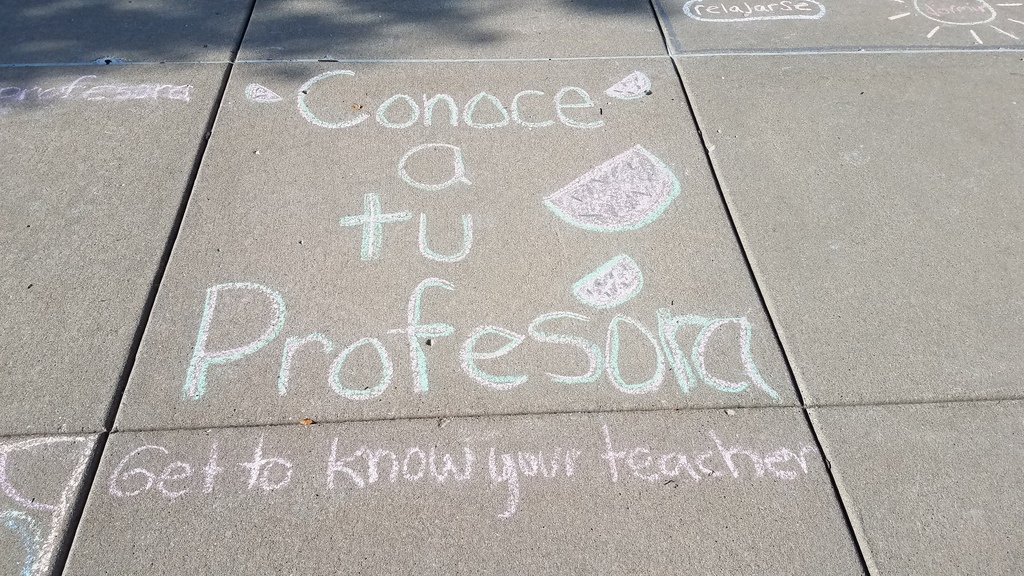 relajarse
profesora
Conoce
a
tu
Profesora
Get to know your teacher